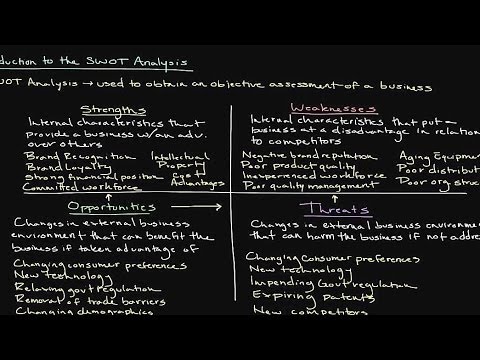 duction to the SWOT Analysis
WOT Analysis → used to obtain an objective assessment of a business
Strengths
Internal characteristics that
provide a business w/an adv.
over others
Brand Recognition Intellectual
Brand Loyalty Property
Strong financial position Cost
Committed workforce Advantages
Weaknesses
Internal characteristics that put
business at a disadvantage in relation
to competitors
Negative brand reputation Aging Equipme
Poor product quality Poor distribut
Inexperienced workforce Poor org struc
Poor quality management
Opportunities →
Changes in external business
environment that can benefit the
business if taken advantage of
Changing consumer preferences
New technology
Relaxing gov't regulation
Removal of trade barriers
Changing demographics
Threats
Changes in external business environme
that can harm the business if not addre
Changing Consumer preferences
New technology
Impending Gov't regulation
Expiring patents
New competitors